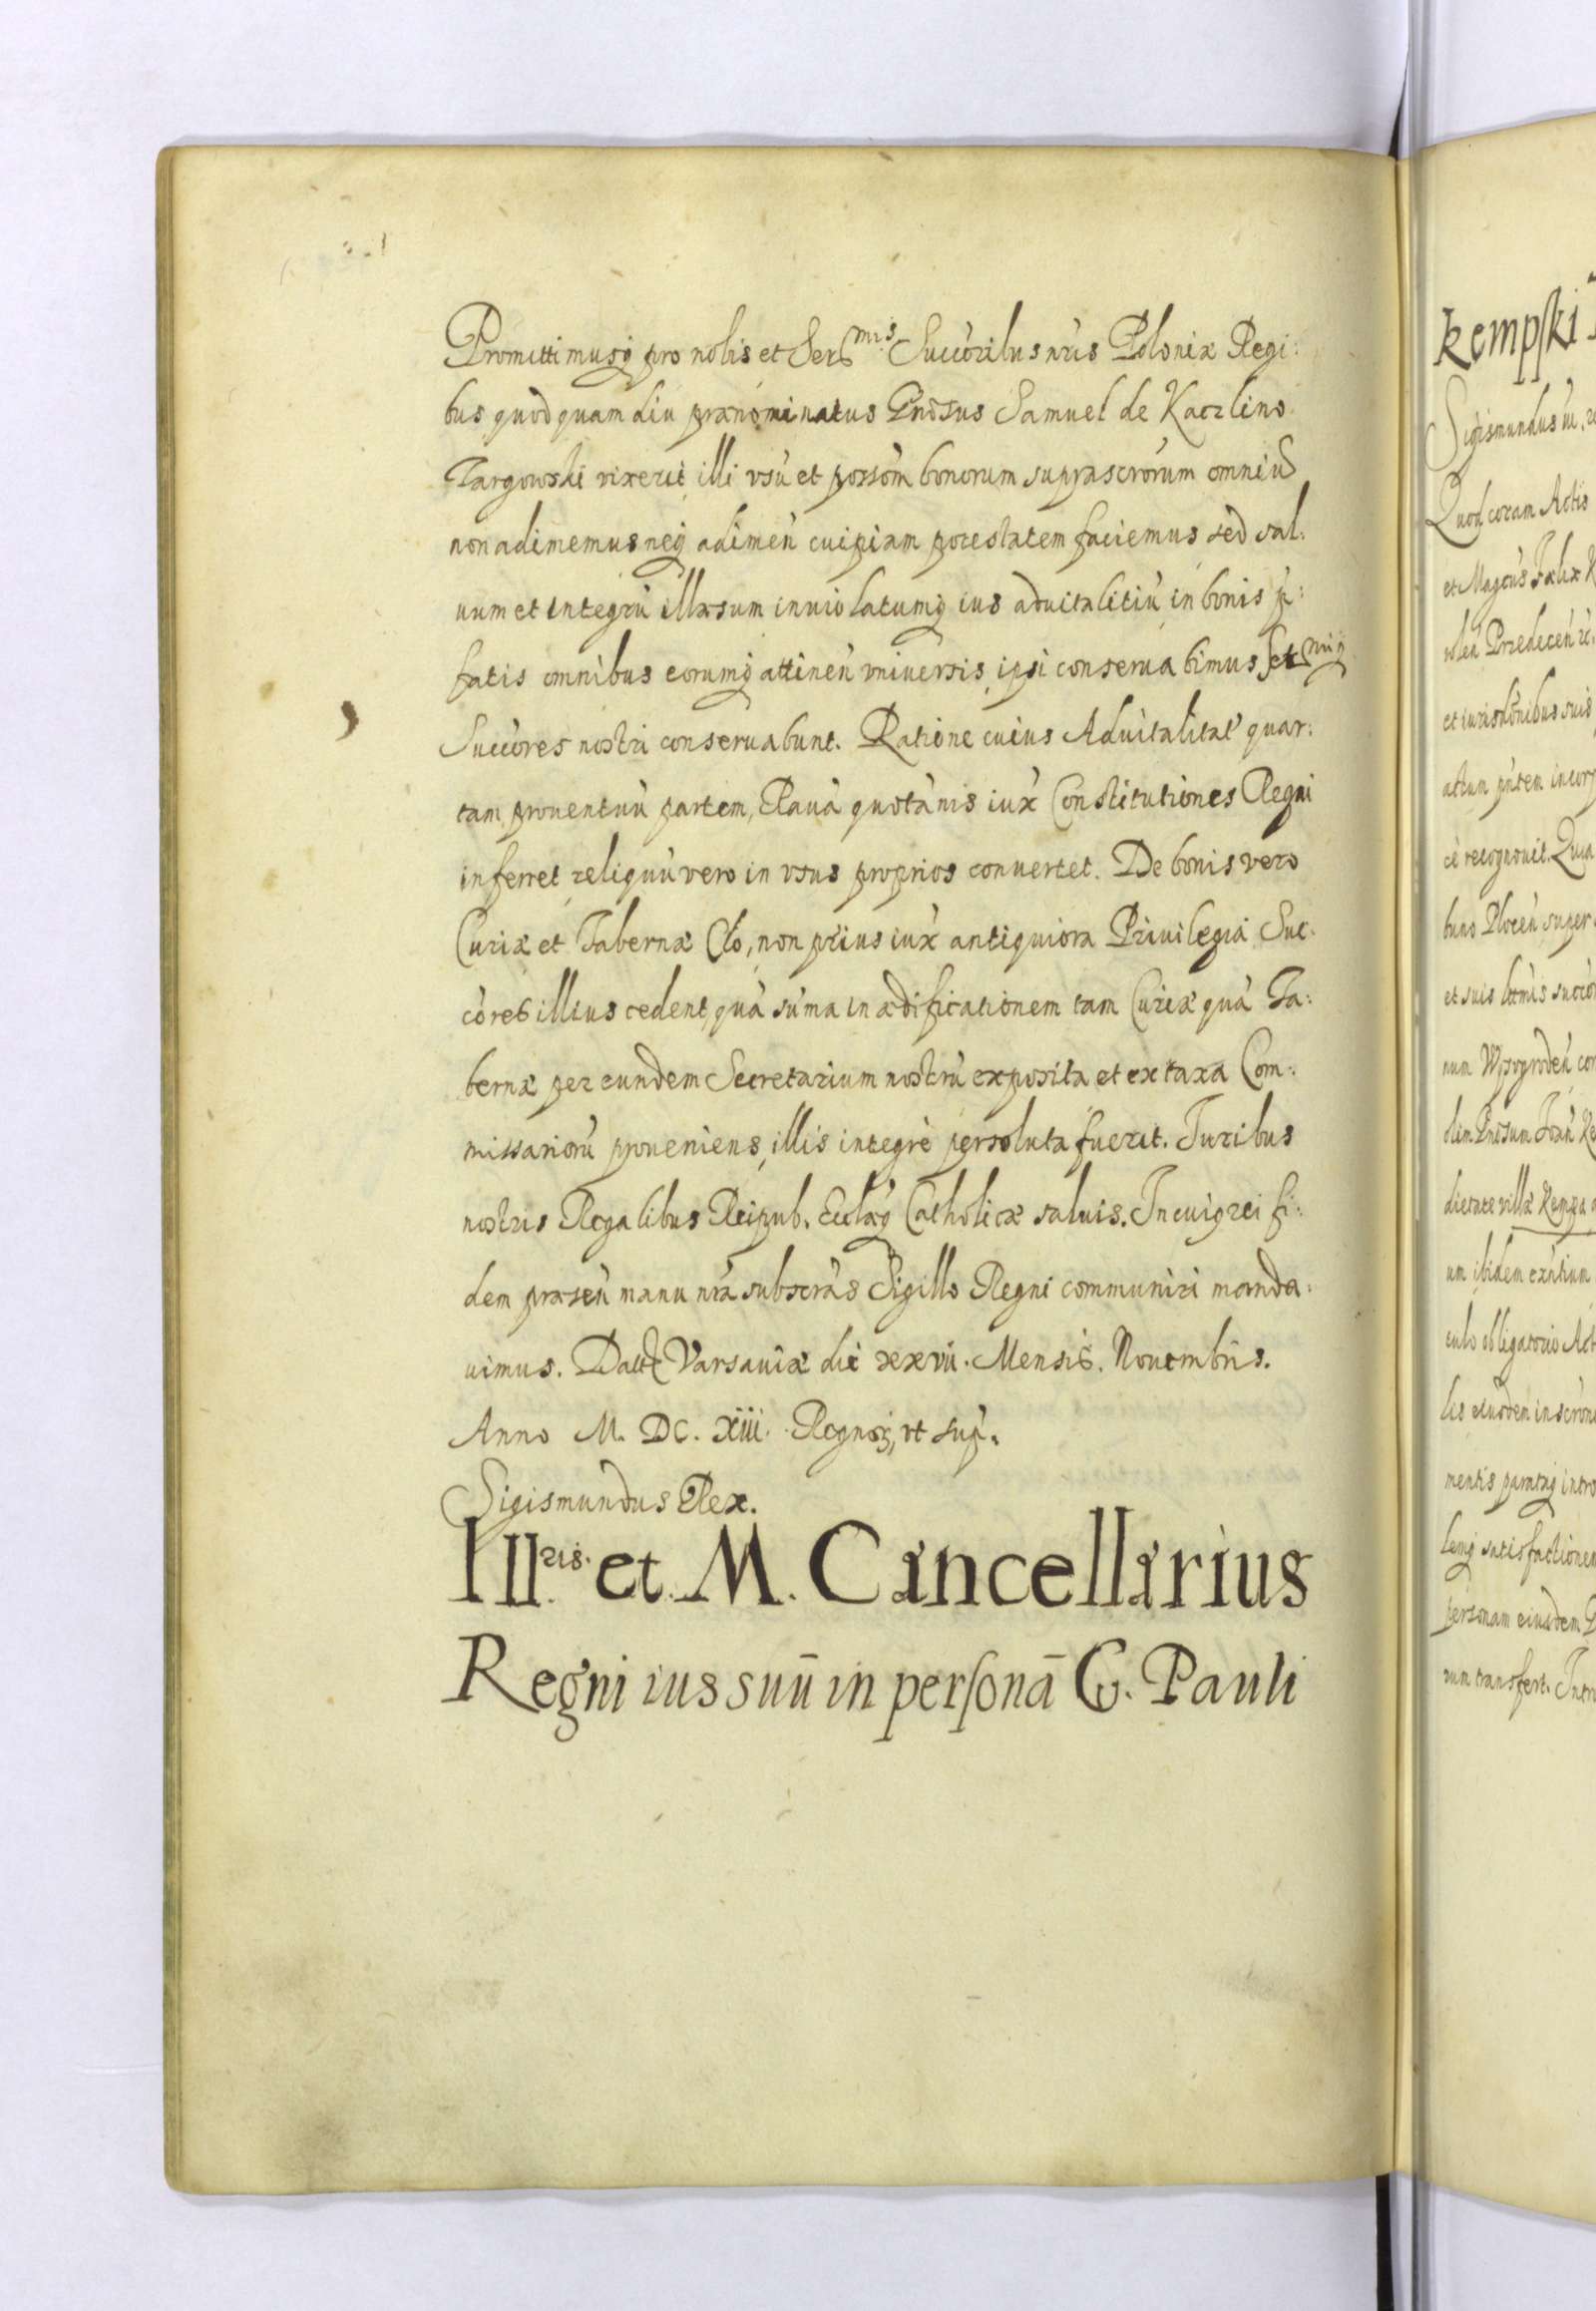 Promittimusq̃ pro nobis et Ser.mis Succoribus nris Poloniæ Regi:
bus quod quam diu prænominatus Gnosus Samuel de Kaczlino
Targowski vixerit, illi vsũ et possom bonorum suprascrorum omniũ
non adimemus neq̃ adimeñ cuipiam potestatem faciemus, sed sal:
uum et integrũ illæsum inuiolatumq̃ ius aduitalitiũ in bonis p:
fatis omnibus eorumq̃ attineñ vniuersis, ipsi conseruabimus, et
Succores nostri conseruabunt. Ratione cuius Aduitalitat quar:
tam prouentuũ partem, Rauã quotãnis iux Constitutiones Regni
inferret, reliquũ vero in vsus proprios conuertet. De bonis vero
Curiæ et Tabernæ non prius iux antiquiora Priuilegia, Suc:
cores illius cedent, quã sũma in ædificationem tam Curiæ quã Ta:
bernæ per eundem Secretarium nostrũ exposita et ex taxa Com:
missariorũ proueniens, illis integrè persoluta fuerit. Iuribus
nostris Regalibus Reipub. Ecclæq̃ Catholicæ saluis. In cuiq rei fi:
dem præseñ manu nra subscras Sigillo Regni communiri manda:
uimus. Datt Varsauiæ die xxvii. Mensis. Nouembris.
Anno M. DC. XIII. Regnorz, vt sup.
Sigismundus Rex.
Ill.ris et. M. Cancellarius
Regni ius suũ in personã G. Pauli
kempski
Sigismundus iii,
Quod coram Actis
et Magcus Fælix
et iurisdonibus suis
actum pñtem incorp
cè recognouit. Quia
buno Ploceñ super
et suis lttmis succo
num Wyssogrodeñ cor
olim Gnosum Ioañ Ke
dietate villæ Kempa
um ibidem exñtium
culo obligatorio Act
lis eiusdem inscrons
mentis paratq̃ intro
leniq satisfactionem
personam eiusdem
rum transfert. Intro